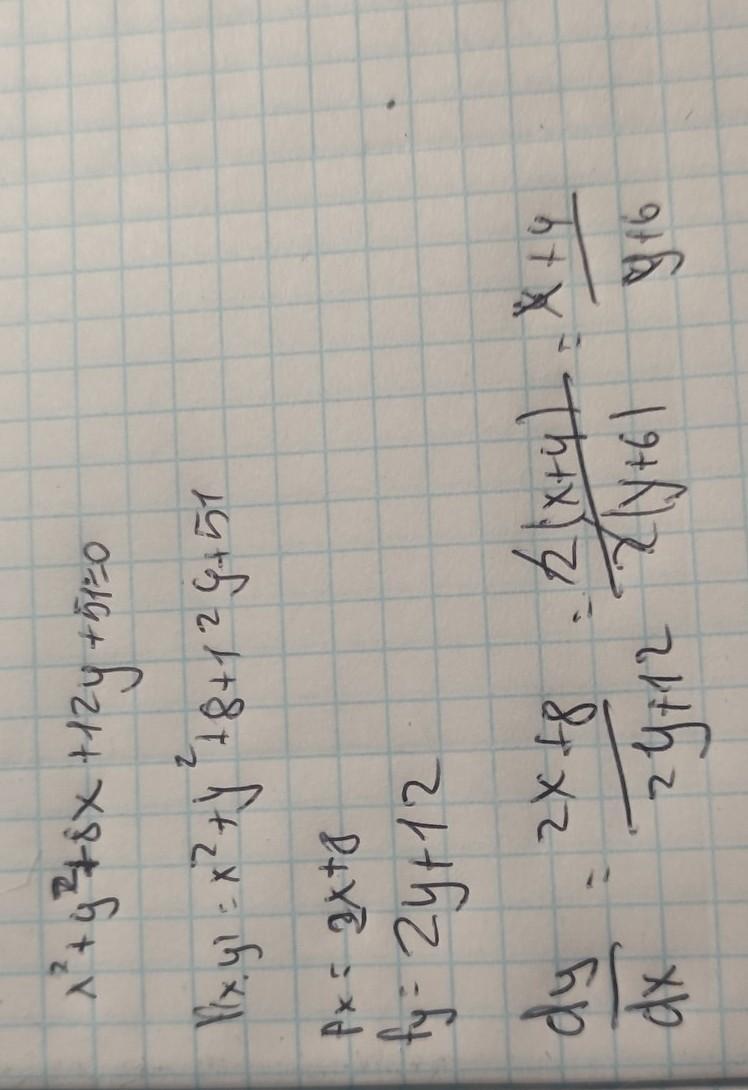 x²+y²+8x+12y+51=0
F(x,y)=x²+y²+8+12y+51
Fx=2x+8
fy=2y+12
dy/dx = 2x+8/2y+12 = 2(x+4)/2(y+6) = x+4/y+6